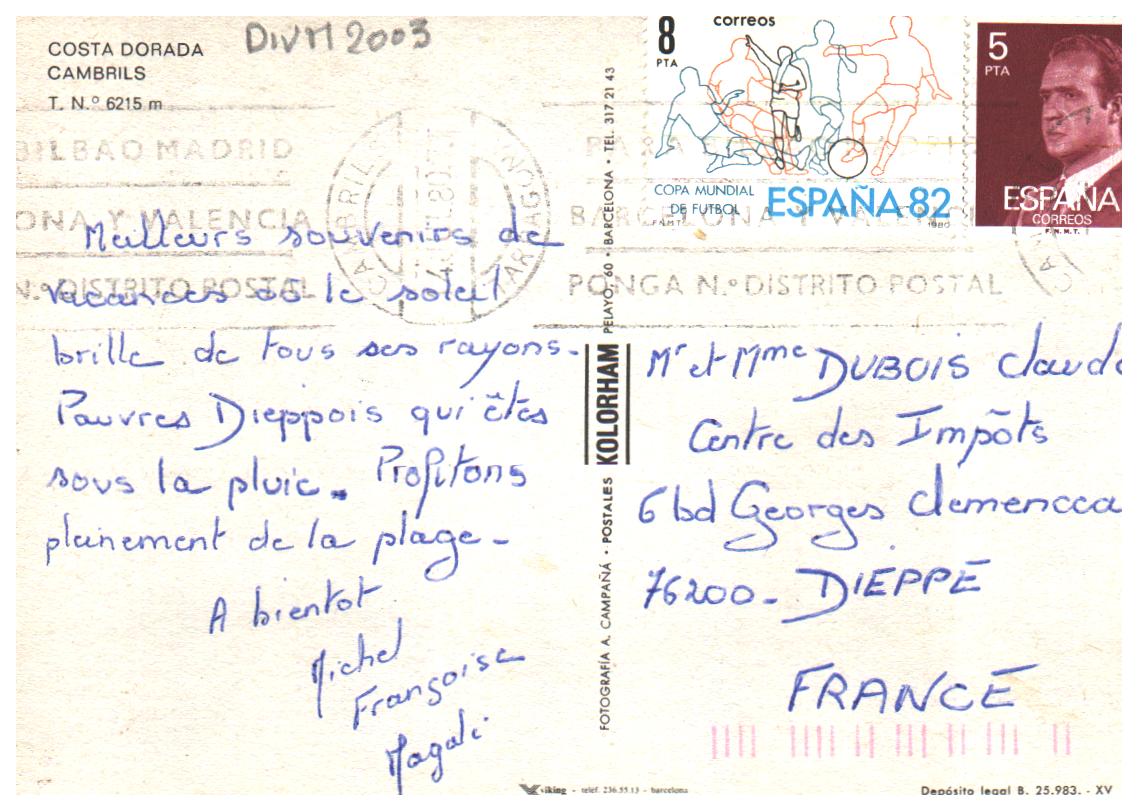 COSTA DORADA
CAMBRILS
T. N.º 6215 m
DIVM 2003
BILBAO MADRID
ONA Y VALENCIA
N.º DISTRITO POSTAL
CAMBRILS
TARRAGONA
PARA
BARCELONA Y VALEN
PONGA N.º DISTRITO POSTAL
8
PTA
correos
COPA MUNDIAL
DE FUTBOL
ESPAÑA 82
F.N.M.T.
1980
5
PTA
ESPAÑA
CORREOS
F.N.M.T.
Meilleurs souvenirs de
vacances où le soleil
brille de tous ses rayons.
Pauvres Dieppois qui êtes
sous la pluie. Profitons
pleinement de la plage.
A bientot
Michel
Françoise
Magali
FOTOGRAFÍA A. CAMPAÑÁ • POSTALES KOLORHAM PELAYO, 60 • BARCELONA • TEL. 317 21 43
Mr et Mme DUBOIS Claude
Centre des Impôts
6 bd Georges Clemencea
76200 - DIEPPE
FRANCE
viking - teléf. 236.55.13 - barcelona
Depósito legal B. 25.983. - XV